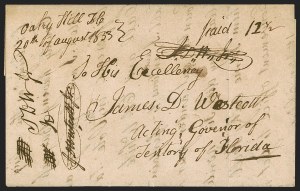 Oakey Hill Fla
20th of August 1835
paid 12½
To His Excellency
James D. Westcott
Acting Govenor of
Teritory of Florida